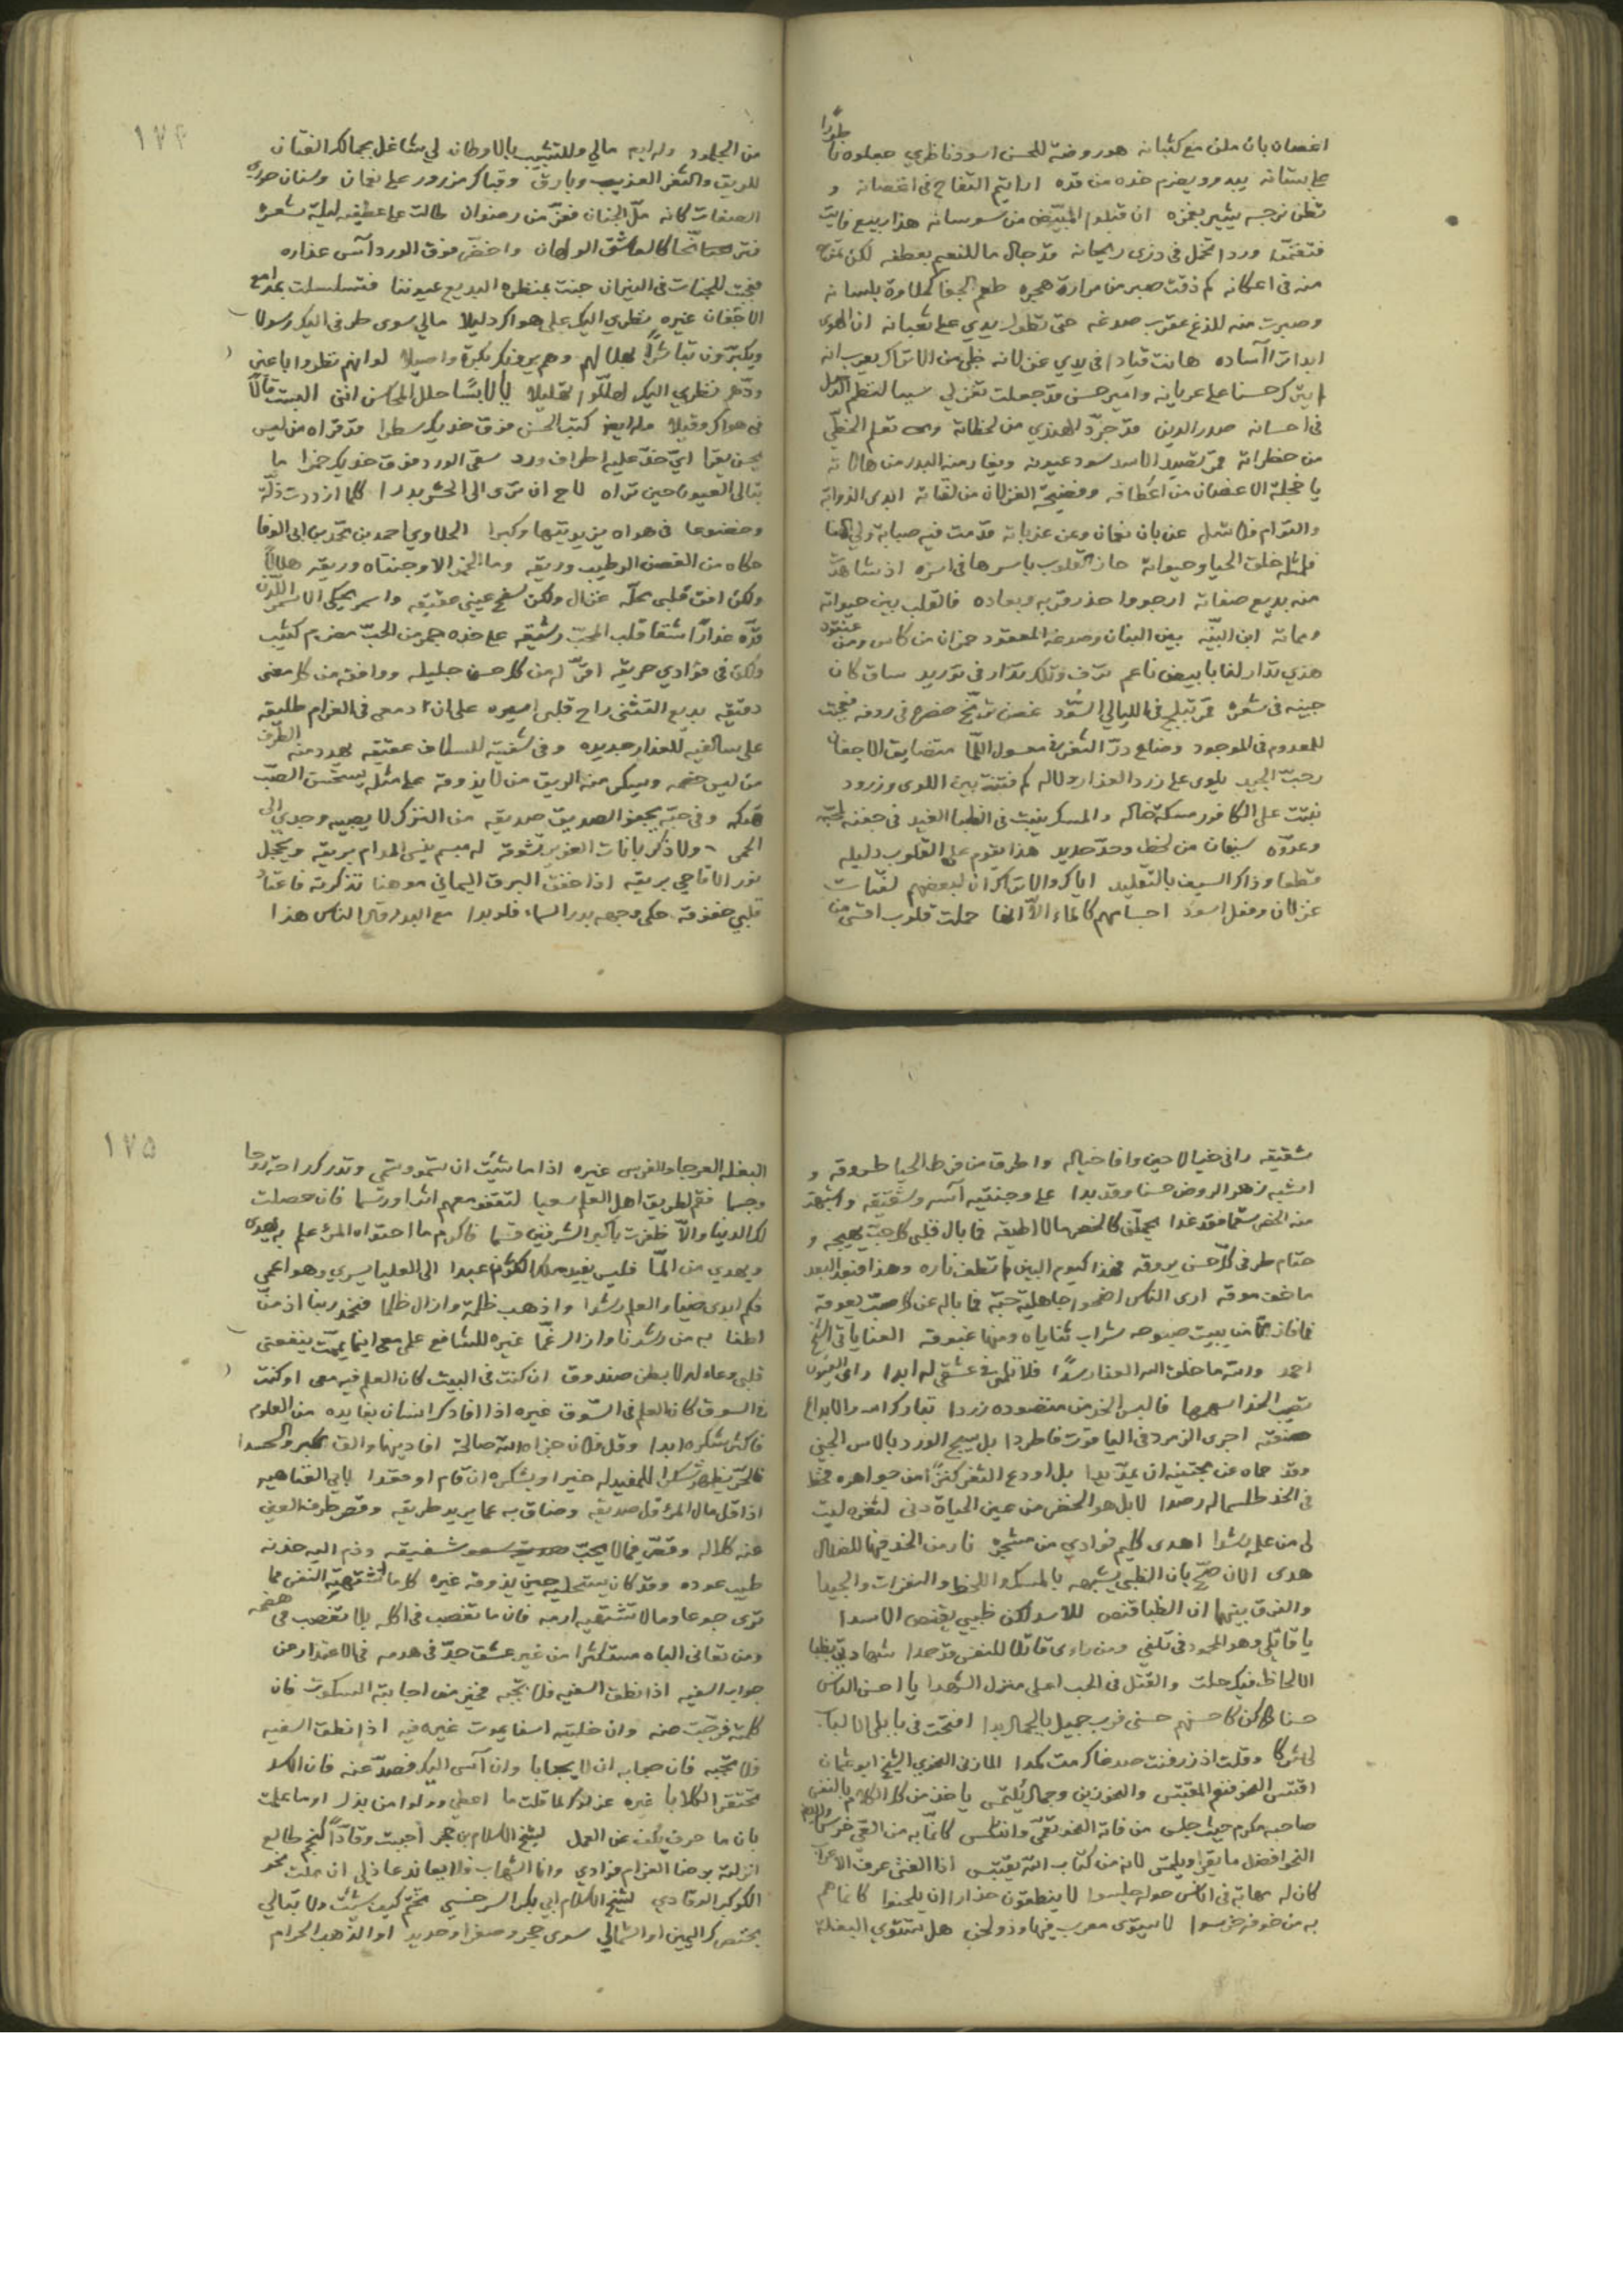 اغصان بان ملن مع كثبانه هو روضة للحسن اسود ناظري
على بستانه يبدو ويضرم خده من قده ارايتم التفاح في اغصانه و
تظن نرجسه يشير بغمزه ان قبلوا المبيض من سوسانه هذا ربيع
ورد اتحمل في ذرى ريحانه قد جال ما للنعيم بعطفه لكن
منه في اعكانه كم ذقت صبر من مرارة هجره طعم الجفا كحلاوة بلسانه
وصبرت منه للذغ عقرب صدغه حتى تطول يدي على ثعبانه ان الهوى
ابدا آساده هانت قيادا في يدي غزلانه ظبي من الاتراك يعرب انه
حسنا على عربانه وامير حسن قد جعلت تغزلي سببا لنظم
في احسانه صدر الدين قد جرد الهندي من لحظاته تعلم الخطي
من خطراته قمر تصيد الاسد سود عيونه ويغار منه البدر من هالاته
يا خجلة الاغصان من اعطافه وفضيحة الغزلان من لفتاته
والغرام فلا تسل عن بان نعمان وعن عذباته قد مت فيه صبابة
خلق الحيا وحيواته حاز القلوب باسرها في اسره اذ شاهدت
منه بديع صفاته ارجو واحذر قربه وبعاده فالقلب بين حيواته
ومماته ابن النبيه بين البنان وصدغه المعقود خمران من كاس ومن عنقود
هذي تدار لنا بابيض ناعم ترف وتلك تدار في توريد ساق كان
جبينه في شعره قمر تبلج في الليالي السود غصن ترنح خصره في ردفه فعجبت
للمعدوم في الموجود وضاع در الثغر في معسول اللما متضايق الاجفان
رحب الجيد يلوي على زرد العذار دلاله كم فتنة بين اللوى وزرود
نبتت على الكافور مسكة خاله والمسك ينبت في الظبا الغيد في جفنه
سيفان من لحظ وحد حديد هذا يقوم على القلوب دليله
قطعا وذاك السيف بالتقليد اياك والاتراك ان لبعضهم لفتات
غزلان وفعل اسود اجسامهم كالماء الا انها حملت قلوب اقسى من
من الجلمود وله ايه مالي وللتشبيب بالاوطان لي شاغل بجمالك الفتان
للريق والثغر العذيب وبارق وقباك مزرور على نعمان وسنان حوري
الصفات كانه مل الجنان ففر من رضوان طالت على عطفيه ليلة شعره
كالعاشق الولهان واخضر فوق الورد آس عذاره
فعجبت للجنات في النيران جنت بمنظره البديع عيوننا فتسلسلت بمدامع
الاجفان غيره نظري اليك على هواك دليلا مالي سوى طرفي اليك رسولا
ويكبرون لهلالهم وهم يروك بكرة واصيلا لو انهم نظروا باعين
نظري اليك لهللوا تهليلا يا لابسا حلل المحاسن انني البست
في هواك وقيلا وله ايضا كتب الحسن فوق خديك سطرا قد قراه من ليس
يحسن يقرا اي خد عليه اطراف ورد سقى الورد فوق خديك خمرا ما
تبالي العيون حين تراه لاح ان ترى الى الحشر بدرا كلما ازددت ذلة
وخضوعا في هواه يزيد تيها وكبرا الحلاوي احمد بن محمد بن ابي الوفا
حكاه من الغصن الرطيب وريقه وما الخمر الا وجنتاه وريقه هلال
ولكن افق قلبي محله غزال ولكن سفح عيني عقيقه واسمر يحكي الاسمر اللدن
قده غدا راشقا قلب المحب رشيقه على خده جمر من الحب مضرم
ولكن في فؤادي حريقه اقر له من كل حسن جليله ووافقه من كل معنى
دقيقه بديع التثني راح قلبي اسيره على ان دمعي في الغرام طليقه
على سالفيه للعذار جديده وفي شفتيه للسلاف عتيقه يهدد منه الطرف
من ليس خصمه ويسكر منه الريق من لا يذوقه على مثله يستحسن الصب
هتكه وفي حبه يجفو الصديق صديقه من الترك لا يصبيه وجد الى
الحمى ولا ذكر بانات الغوير تشوقه له مبسم ينسي المدام بريقه ويخجل
نور الاقاحي بريقه اذا خفق البرق اليماني موهنا تذكرته فاعتاد
قلبي خفوقه حكى وجهه بدر السماء فلو بدا مع البدر قال الناس هذا
شقيقه راني خيالا حين وافا خياله واطرق من فرط الحيا طروقه و
اشبه زهر الروض حسنا وقد بدا على وجنتيه آسه وشقيقه
منه الخصر سقما فقد غدا يحملني كالخصر مالا اطيقه فما بال قلبي كل حب يهيجه و
حتام طرفي كل حسن يروقه فهذا ليوم البين لم تطف ناره وهذا البعد
ما خف موقه ارى الناس اضحوا جاهلية حبه فما باله عن كل صب يعوقه
فما فاز الا من يبيت صبوحه شراب ثناياه ومنها غبوقه العناياتي الشيخ
احمد والله ما خلق الله العذار سدا فلا تلمني في عشقي له ابدا راى العيون
تصيب الخد اسهمها فالبس الخد من منضوده زردا تبارك الله والابداع
صنعته اجرى الزمرد في الياقوت فاطردا بل سيج الورد بالاس الجني
وقد حماه عن مجتنيه ان يمد يدا بل اودع الثغر كنزا من جواهره فخط
في الخد طلسما له رصدا لا بل هو الخضر من عين الحياة دنى لثغره ليت
لي من علمه رشدا اهدى كليم فؤادي من نار من الخد فيها للضلال
هدى الان صح بان الظبي يشبهه بالمسك واللحظ والنفرات والجيدا
والفرق بينهما ان الظبا قنص للاسد لكن ظبيي يقنص الاسدا
يا قاتلي وهو المحمود في تلفي ومن راى قاتلا للنفس قد حمدا شهادتي بظبا
الالحاظ فيك حلت والقتل في الحب اعلى منزل الشهدا يا احسن الناس
حسنا كن كاحسنهم حسنى فرب جميل بالجمال بدا
لي شركا وقلت اذ زرفنت صدغاك مت كمدا المازني النحوي الشيخ ابو عثمان
اقتبس النحو فنعم المقتبس والنحو زين وجمال يلتمس ياخذ من كل الكلام بالنفس
صاحبه مكرم حيث جلس من فاته النحو تعمى وانتكس كانما به من العي خرس
النحو افضل ما يقرا ويلتمس لانه من كتاب الله يقتبس اذا الفتى عرف الاعراب
كان له مهابة في اناس حوله جلسوا لا ينطقون حذارا ان يلحنوا كانما هم
به من خوفه خرسوا لا يستوي معرب فينا وذو لحن هل تستوي البغلة
البغله العرجا والفرس غيره اذا ما شئت ان تسمو وتسمى وتدرك راحة روحا
وجسما فقم لطريق اهل العلم سعيا لتقفو معهم اثرا ورسما فان حصلت
لك الدنيا والا ظفرت باكبر الشرفين قسما فاكرم ما احتواه المرء علم به يهدى
ويهدي من الما فليس يفيد مال عبدا الى العليا يسري وهو اعمى
فكم ابدى ضياء العلم رشدا واذهب ظلمة وازال ظلما فنحمد ربنا اذ من
لطفا به من رشدنا وازال غما غيره للشافعي علمي معي اينما يممت ينفعني
قلبي وعاء له لا بطن صندوق ان كنت في البيت كان العلم فيه معي او كنت
في السوق كان العلم في السوق غيره اذا افادك انسان بفايده من العلوم
فاكثر شكره ابدا وقل فلان جزاه الله صالحة افادنيها والق الكبر والحسدا
فالحر يظهر شكرا للمفيد له خيرا ويشكره ان قام او قعدا لابي العتاهيه
اذا قل مال المرء قل صديقه وضاق به عما يريد طريقه وقصر طرف العين
عنه كلاله
طيب عوده وقد كان يستحليه حين يذوقه غيره كل ما تشتهيه النفس مما
ترى جوعا وما لا تشتهيه ارمه فان ما تغصب في اكله بلا تغصب في هضمه
ومن تعانى الباه مستكثرا من غير عشق جد في هدمه في الاعتذار عن
جواب السفيه اذا نطق السفيه فلا تجبه فخير من اجابته السكوت فان
كلمته فرجت عنه وان خليته اسفا يموت غيره فيه اذا نطق السفيه
فلا تجبه فان جوابه ان لا يجابا وان آسى اليك فصد عنه فان الكلا
تحتقر الكلابا غيره عزلوك لما قلت ما اعطي وولوا من بذل اوما علمت
بان ما حرف يكف عن العمل لشيخ الاسلام بن حجر
وانا الشهاب فلا يعاند عاذلي ان ملت نحو
الكوكب الوقاد لشيخ الاسلام ابي بكر السرخسي تختم كيف شئت ولا تبالي
بخنصرك اليمين او الشمالي سوى حجر وصفر او حديد او الذهب الحرام
١٧٤
١٧٥